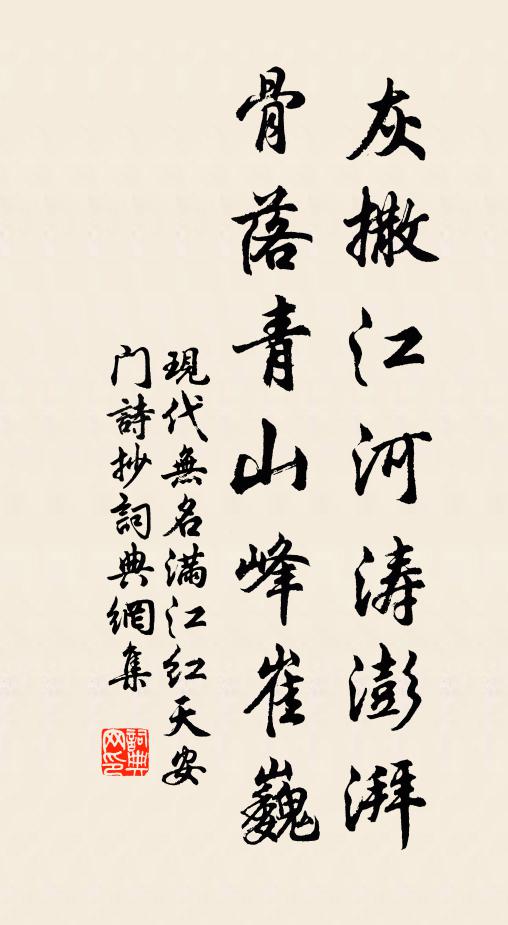 灰撒江河涛澎湃
骨落青山峰崔巍
現代無名满江红天安
门詩抄詞典網集
詞典
网印